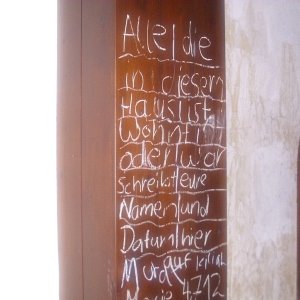 Alle die
in diesem
Haus ist
Wohnt
oder war
schreibt eure
Namen und
Datum hier
auf
4712